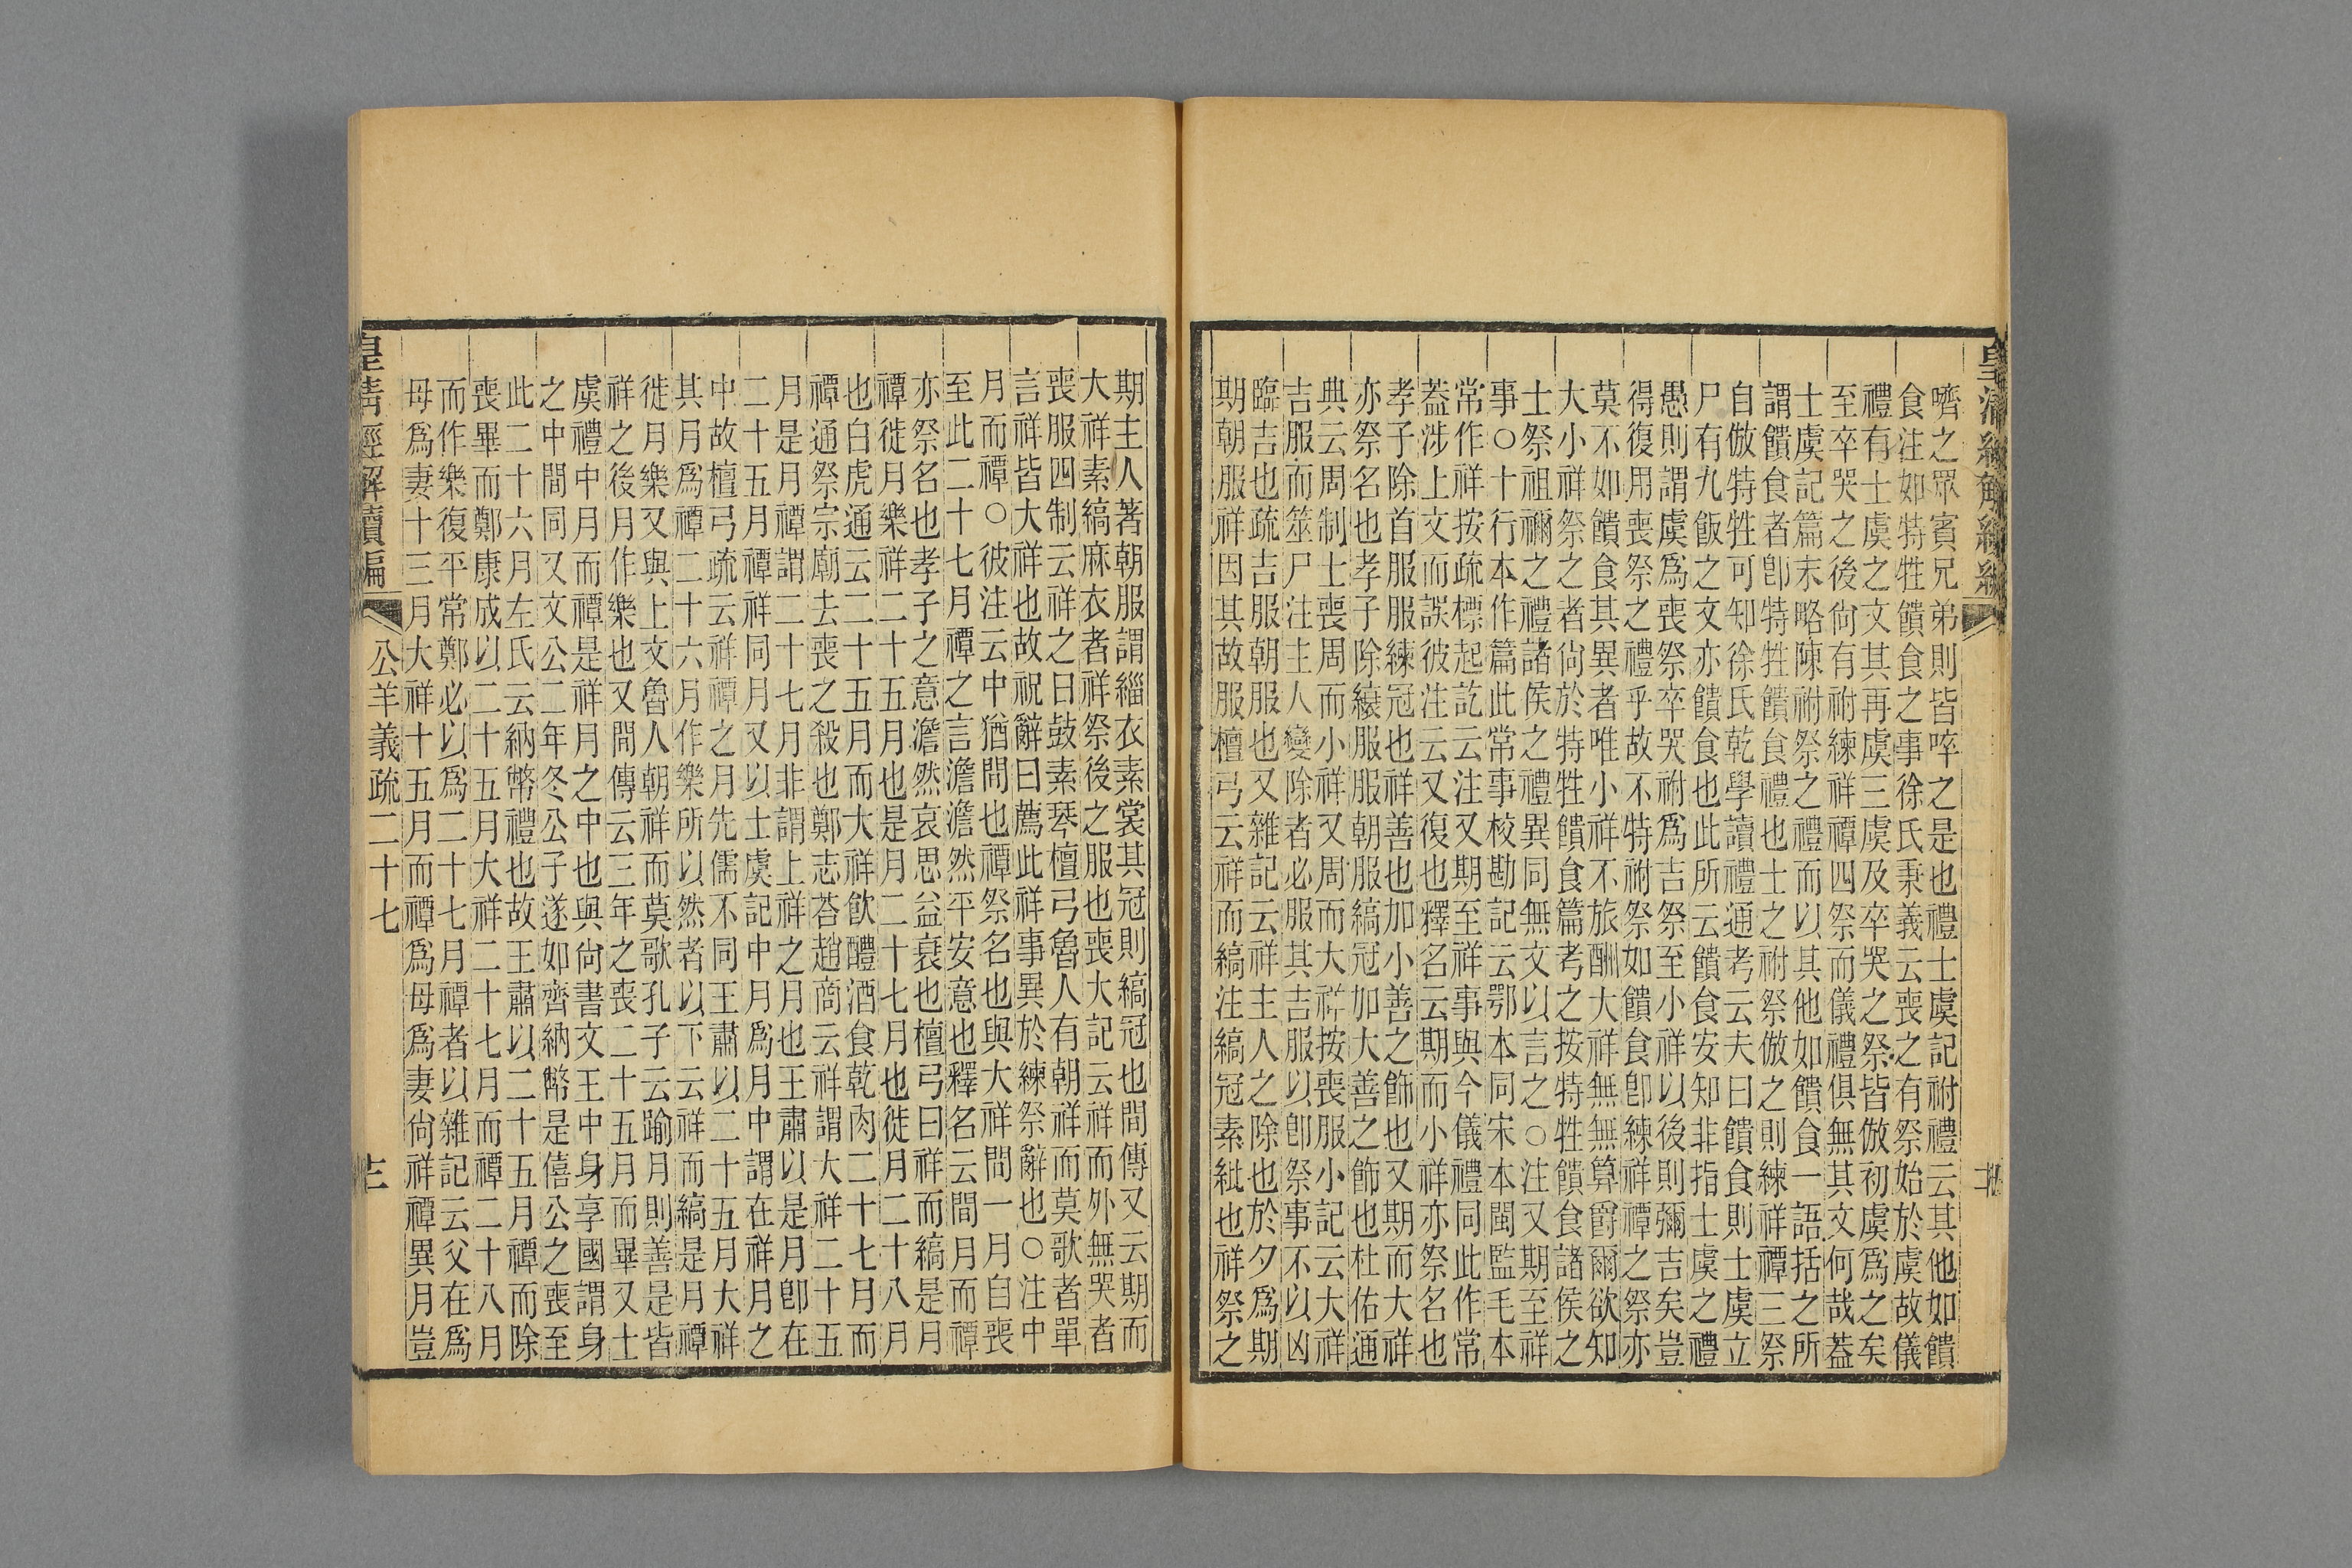 嚌之眾賓兄弟則皆啐之是也禮士虞記祔禮云其他如饋
食注如特牲饋食之事徐氏秉義云喪之有祭始於虞故儀
禮有士虞之文其再虞三虞及卒哭之祭皆倣初虞爲之矣
至卒哭之後尙有祔練祥禫四祭而儀禮俱無其文何哉蓋
士虞記篇末略陳祔祭之禮而以其他如饋食一語括之所
謂饋食者卽特牲饋食禮也士之祔祭倣之則練祥禫三祭
自倣特牲可知徐氏乾學讀禮通考云夫曰饋食則士虞立
尸有九飯之文亦饋食也此所云饋食安知非指士虞之禮
愚則謂虞爲喪祭卒哭祔爲吉祭至小祥以後則彌吉矣豈
得復用喪祭之禮乎故不特祔祭如饋食卽練祥禫之祭亦
莫不如饋食其異者唯小祥不旅酬大祥無無算爵爾欲知
大小祥祭之者尙於特牲饋食篇考之按特牲饋食諸侯之
士祭祖禰之禮諸侯之禮異同無文以言之○注又期至祥
事○十行本作篇此常事校勘記云鄂本同宋本閩監毛本
常作祥按疏標起訖云注又期至祥事與今儀禮同此作常
蓋涉上文而誤彼注云又復也釋名云期而小祥亦祭名也
孝子除首服服練冠也祥善也加小善之飾也又期而大祥
亦祭名也孝子除縗服服朝服縞冠加大善之飾也杜佑通
典云周制士喪周而小祥又周而大祥按喪服小記云大祥
吉服而筮尸注主人變除者必服其吉服以卽祭事不以凶
臨吉也疏吉服朝服也又雜記云祥主人之除也於夕爲期
期朝服祥因其故服檀弓云祥而縞注縞冠素紕也祥祭之
期主人著朝服謂緇衣素裳其冠則縞冠也間傳又云期而
大祥素縞麻衣者祥祭後之服也喪大記云祥而外無哭者
喪服四制云祥之日鼓素琴檀弓魯人有朝祥而莫歌者單
言祥皆大祥也故祝辭曰薦此祥事異於練祭辭也○注中
月而禫○彼注云中猶間也禫祭名也與大祥間一月自喪
至此二十七月禫之言澹澹然平安意也釋名云間月而禫
亦祭名也孝子之意澹然哀思益衰也檀弓曰祥而縞是月
禫徙月樂祥二十五月也是月二十七月也徙月二十八月
也白虎通云二十五月而大祥飮醴酒食乾肉二十七月而
禫通祭宗廟去喪之殺也鄭志荅趙商云祥謂大祥二十五
月是月禫謂二十七月非謂上祥之月也王肅以是月卽在
二十五月禫祥同月又以士虞記中月爲月中謂在祥月之
中故檀弓疏云祥禫之月先儒不同王肅以二十五月大祥
其月爲禫二十六月作樂所以然者以下云祥而縞是月禫
徙月樂又與上文魯人朝祥而莫歌孔子云踰月則善是皆
祥之後月作樂也又間傳云三年之喪二十五月而畢又士
虞禮中月而禫是祥月之中也與尙書文王中身享國謂身
之中間同又文公二年冬公子遂如齊納幣是僖公之喪至
此二十六月左氏云納幣禮也故王肅以二十五月禫而除
喪畢而鄭康成以二十五月大祥二十七月而禫二十八月
而作樂復平常鄭必以爲二十七月禫者以雜記云父在爲
母爲妻十三月大祥十五月而禫爲母爲妻尙祥禫異月豈
皇清經解續編 公羊義疏二十七